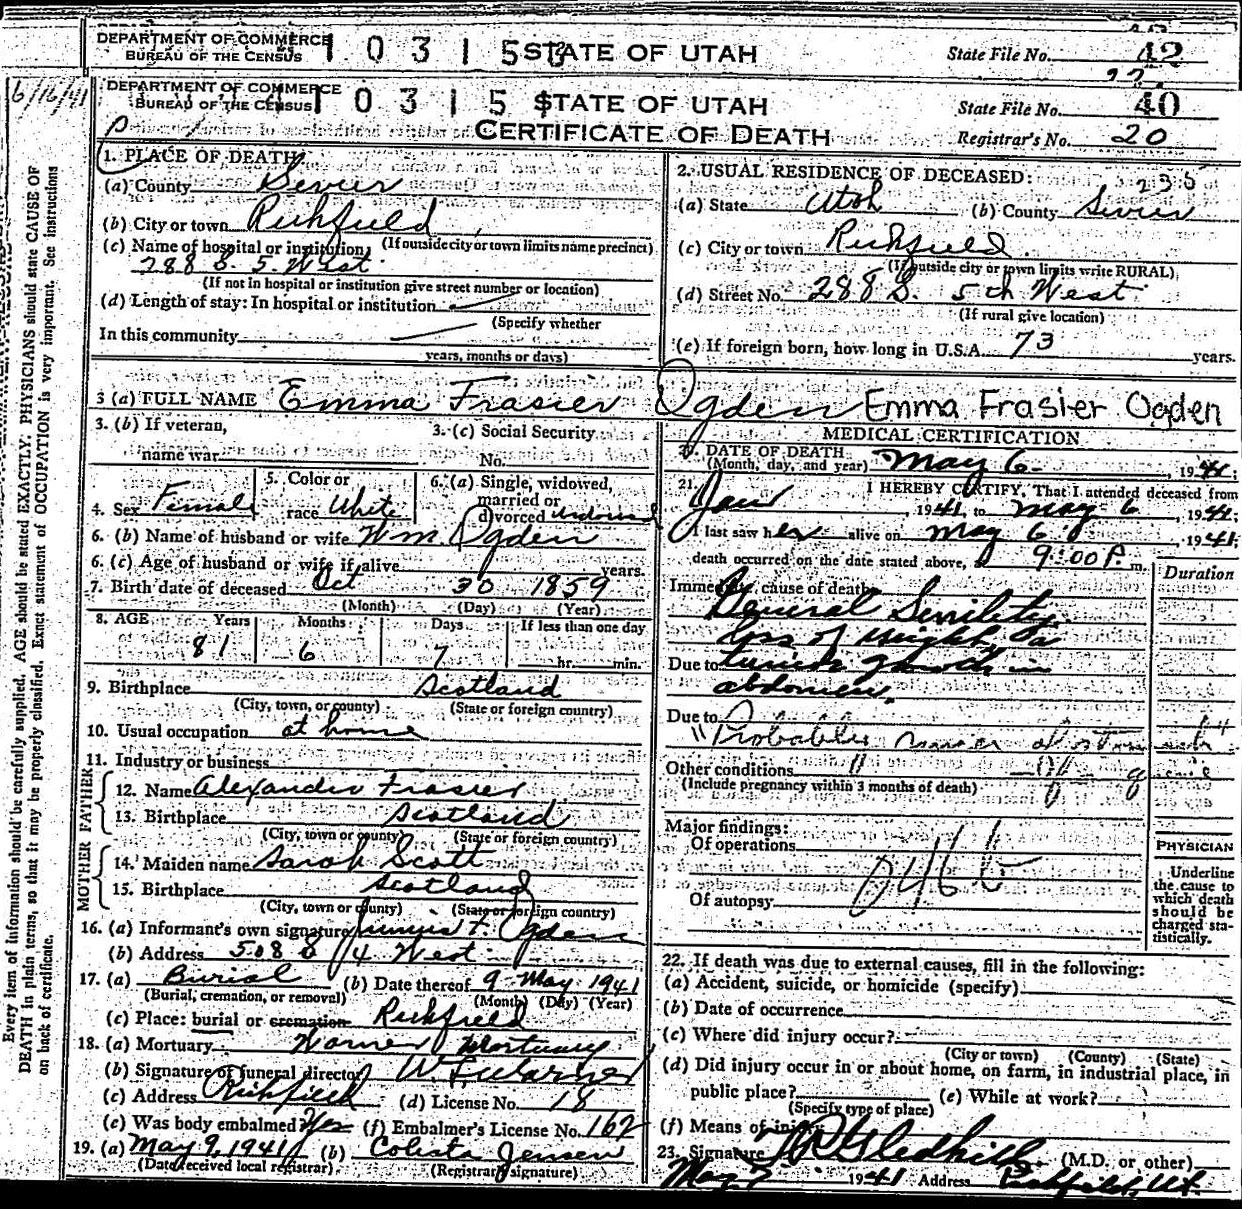 DEPARTMENT OF COMMERCE
BUREAU OF THE CENSUS
1 0 3 1 5 STATE OF UTAH
State File No. 42
DEPARTMENT OF COMMERCE
BUREAU OF THE CENSUS
1 0 3 1 5 STATE OF UTAH
State File No. 40
6/16/41
CERTIFICATE OF DEATH
Registrar's No. 20
1. PLACE OF DEATH
(a) County Sevier
(b) City or town Richfield
(If outside city or town limits name precinct)
(c) Name of hospital or institution,
288 S. 5. West
(If not in hospital or institution give street number or location)
(d) Length of stay: In hospital or institution
(Specify whether
In this community
years, months or days)
2. USUAL RESIDENCE OF DECEASED:
235
(a) State Utah (b) County Sevier
(c) City or town Richfield
(If outside city or town limits write RURAL)
(d) Street No. 288 S. 5th West
(If rural give location)
(e) If foreign born, how long in U.S.A. 73 years.
3 (a) FULL NAME Emma Frasier Ogden Emma Frasier Ogden
3. (b) If veteran,
name war
3. (c) Social Security
No.
4. Sex Female
5. Color or
race White
6. (a) Single, widowed,
married or
divorced widowed
6. (b) Name of husband or wife Wm. Ogden
6. (c) Age of husband or wife if alive years.
7. Birth date of deceased Oct 30 1859
(Month) (Day) (Year)
8. AGE Years Months Days If less than one day
81 6 7 hr. min.
9. Birthplace Scotland
(City, town, or county) (State or foreign country)
10. Usual occupation at home
11. Industry or business
FATHER
12. Name Alexander Frasier
13. Birthplace Scotland
(City, town or county) (State or foreign country)
MOTHER
14. Maiden name Sarah Scott
15. Birthplace Scotland
(City, town or county) (State or foreign country)
16. (a) Informant's own signature Ogden
(b) Address 508 S 4 West
17. (a) Burial (b) Date thereof 9 May 1941
(Burial, cremation, or removal) (Month) (Day) (Year)
(c) Place: burial or cremation Richfield
18. (a) Mortuary Warner Mortuary
(b) Signature of funeral director W. F. Warner
(c) Address Richfield (d) License No. 18
(e) Was body embalmed Yes (f) Embalmer's License No. 162
19. (a) May 9, 1941 (b) Colista Jensen
(Date received local registrar) (Registrar's signature)
MEDICAL CERTIFICATION
20. DATE OF DEATH
(Month, day, and year) May 6, 1941;
21. I HEREBY CERTIFY, That I attended deceased from
Jan, 1941, to May 6, 1941;
I last saw her alive on May 6, 1941;
death occurred on the date stated above, 9:00 P. m.
Duration
Immediate cause of death
General Senility,
loss of weight,
Due to growth in
abdomen.
Due to
" Probable cancer of stomach
Other conditions
(Include pregnancy within 3 months of death)
Major findings:
Of operations
Of autopsy
046 b
PHYSICIAN
Underline
the cause to
which death
should be
charged sta-
tistically.
22. If death was due to external causes, fill in the following:
(a) Accident, suicide, or homicide (specify)
(b) Date of occurrence
(c) Where did injury occur?
(City or town) (County) (State)
(d) Did injury occur in or about home, on farm, in industrial place, in
public place? (e) While at work?
(Specify type of place)
(f) Means of injury
23. Signature Gledhill (M.D. or other)
May 7 1941 Address Richfield, Ut.
Every item of information should be carefully supplied. AGE should be stated EXACTLY. PHYSICIANS should state CAUSE OF
DEATH in plain terms, so that it may be properly classified. Exact statement of OCCUPATION is very important. See instructions
on back of certificate.